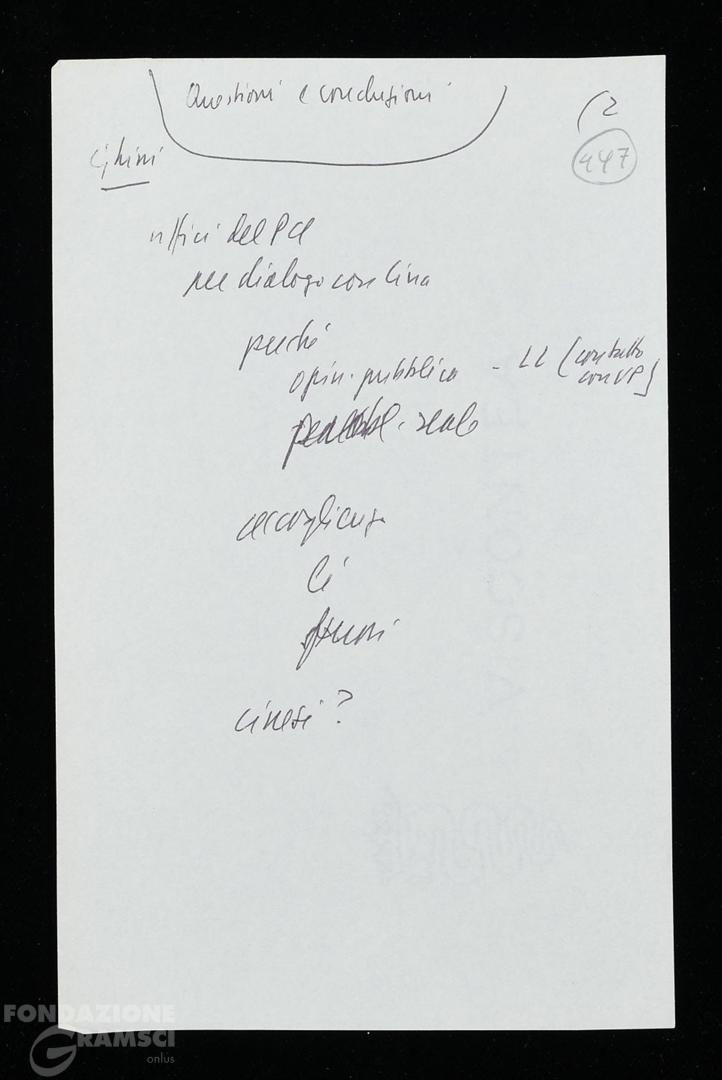 Questioni e conclusioni
(2
447
uffici del PCI
per dialogo con Cina
perché
opin. pubblica - LL (contatto
con VP)
reale
accoglienza
Ci
cinesi?
FONDAZIONE
GRAMSCI
onlus